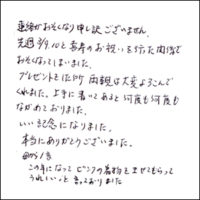 連絡がおそくなり申し訳ございません。
先週 3/9.10 と喜寿のお祝いを
おそくなってしまいました。
プレゼントとしたTEP 両親は大変よろこんで
くれました。上手に書いてあると何度も何度も
ながめておりました。
いい記念になりました。
本当にありがとうございました。
この年になってピンクの着物を着せてもらって
うれしいっと言っておりました